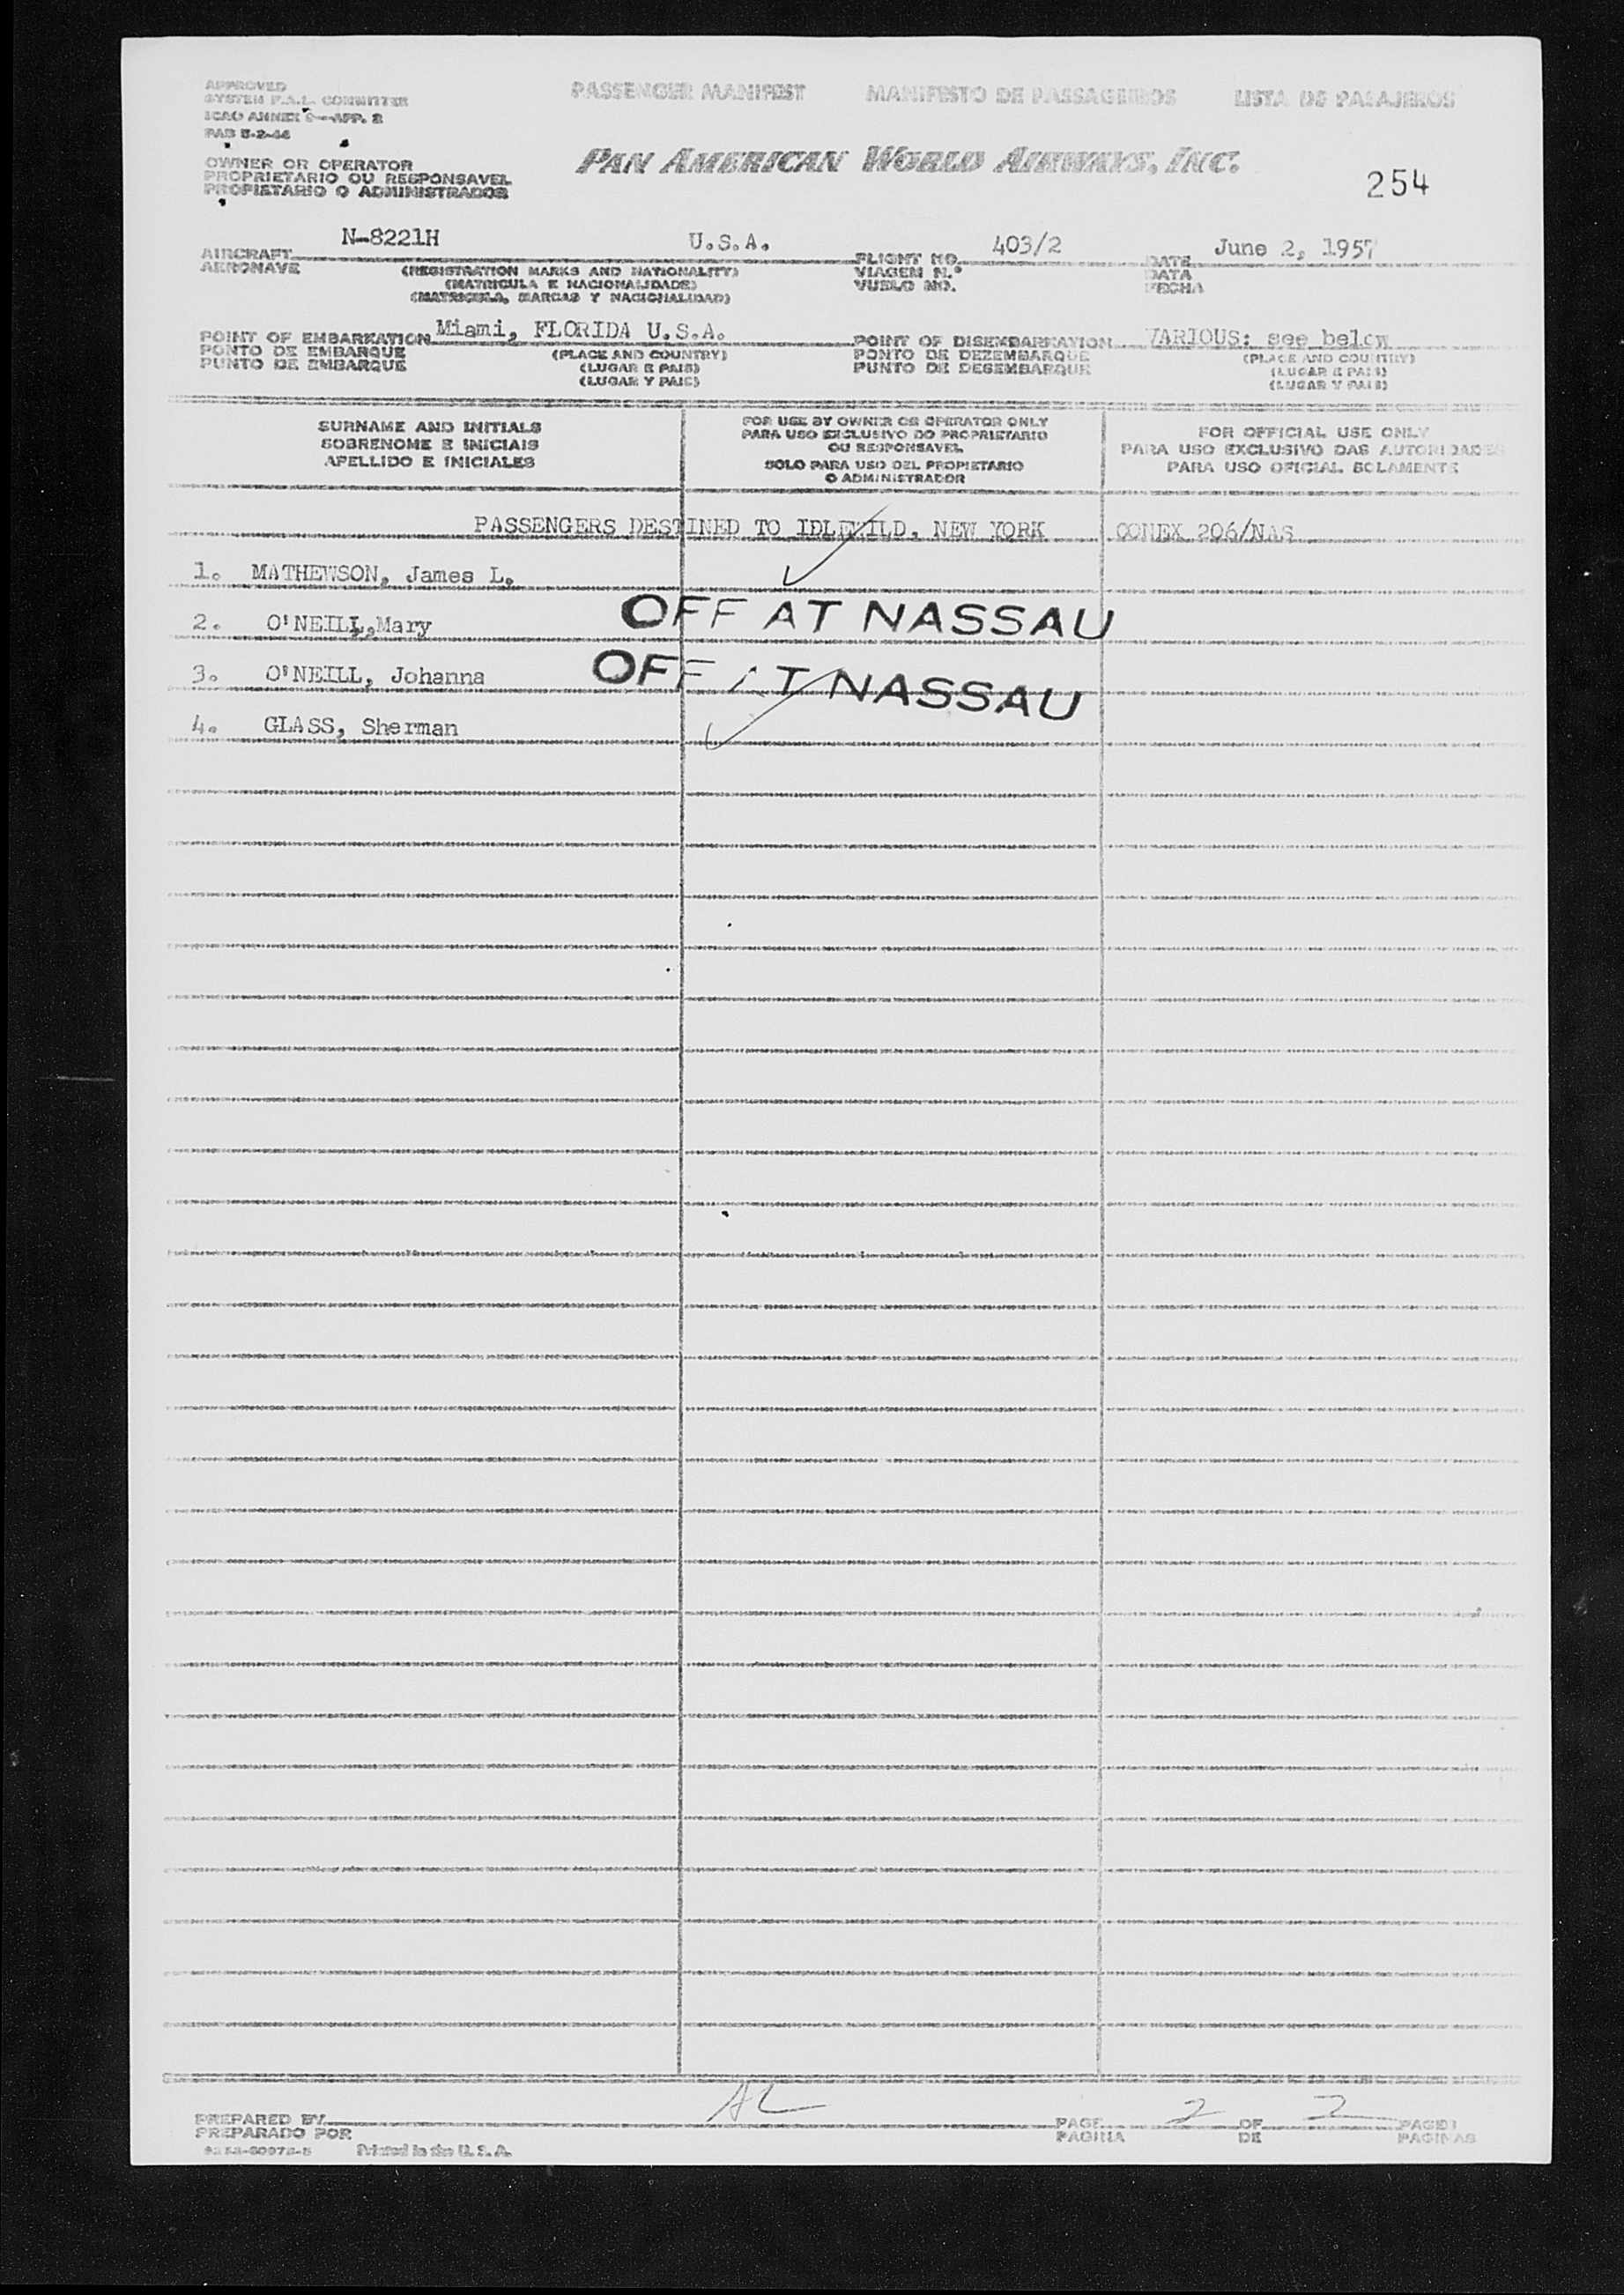 APPROVED
SYSTEM F.A.L. COMMITTEE
ICAO ANNEX 9—APP. 2
PASSENGER MANIFEST MANIFESTO DE PASSAGEIROS LISTA DE PASAJEROS
OWNER OR OPERATOR
PROPRIETARIO OU RESPONSAVEL
PROPIETARIO O ADMINISTRADOR
PAN AMERICAN WORLD AIRWAYS, INC.
254
AIRCRAFT N-8221H U.S.A. FLIGHT NO. 403/2 DATE June 2, 1957
AERONAVE (REGISTRATION MARKS AND NATIONALITY) VIAGEM N.° DATA
(MATRICULA E NACIONALIDADE) VUELO NO. FECHA
(MATRICULA, MARCAS Y NACIONALIDAD)
POINT OF EMBARKATION Miami, FLORIDA U.S.A. POINT OF DISEMBARKATION VARIOUS: see below
PONTO DE EMBARQUE (PLACE AND COUNTRY) PONTO DE DEZEMBARQUE (PLACE AND COUNTRY)
PUNTO DE EMBARQUE (LUGAR E PAIS) PUNTO DE DESEMBARQUE (LUGAR E PAIS)
(LUGAR Y PAIS) (LUGAR Y PAIS)
SURNAME AND INITIALS
SOBRENOME E INICIAIS
APELLIDO E INICIALES
FOR USE BY OWNER OR OPERATOR ONLY
PARA USO EXCLUSIVO DO PROPRIETARIO
OU RESPONSAVEL
SOLO PARA USO DEL PROPIETARIO
O ADMINISTRADOR
FOR OFFICIAL USE ONLY
PARA USO EXCLUSIVO DAS AUTORIDADES
PARA USO OFICIAL SOLAMENTE
PASSENGERS DESTINED TO IDLEWILD, NEW YORK CONEX 206/NAS
1. MATHEWSON, James L.
2. O'NEILL,Mary OFF AT NASSAU
3. O'NEILL, Johanna OFF AT NASSAU
4. GLASS, Sherman
AL
PREPARED BY PAGE 2 OF 2 PAGES
PREPARADO POR PAGINA DE PAGINAS
Printed in the U.S.A.